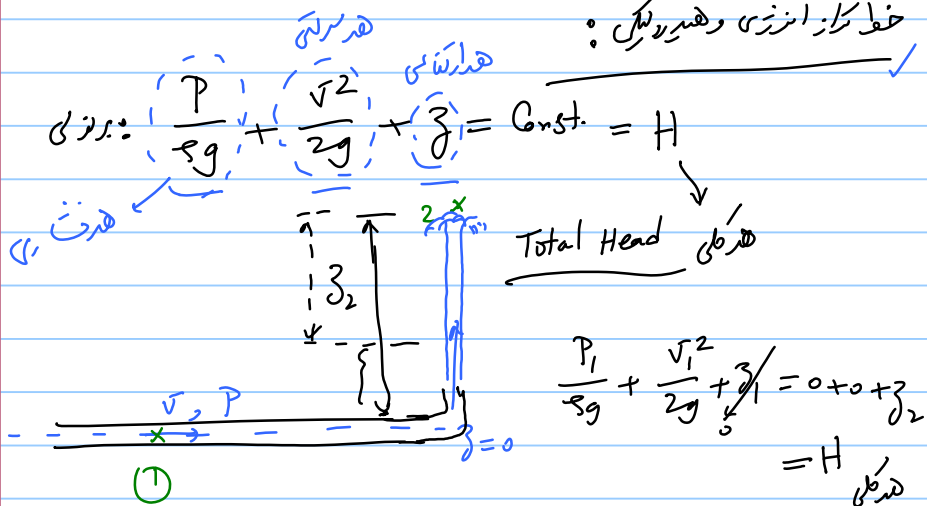 خط تراز انرژی و هیدرولیکی :
هد سرعتی
هد ارتفاعی
برنولی : P/ρg + V²/2g + z = Const. = H
هد فشاری
Total Head هد کلی
2
z₂
P₁/ρg + V₁²/2g + z₁ = 0 + 0 + z₂
0
= H هد کلی
V, P
z = 0
1